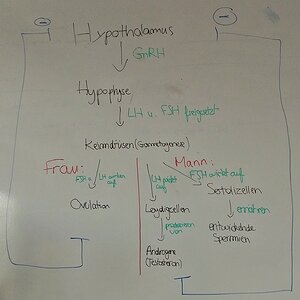 Hypothalamus
GnRH
Hypophyse
LH u. FSH freigesetzt
Keimdrüsen (Gametogenese)
Frau:
Mann:
FSH u. LH wirken auf
LH wirkt auf
FSH wirkt auf
Ovulation
Leydigzellen
Sertolizellen
produzieren von
ernähren
entwickelnde Spermien
Androgene (Testosteron)